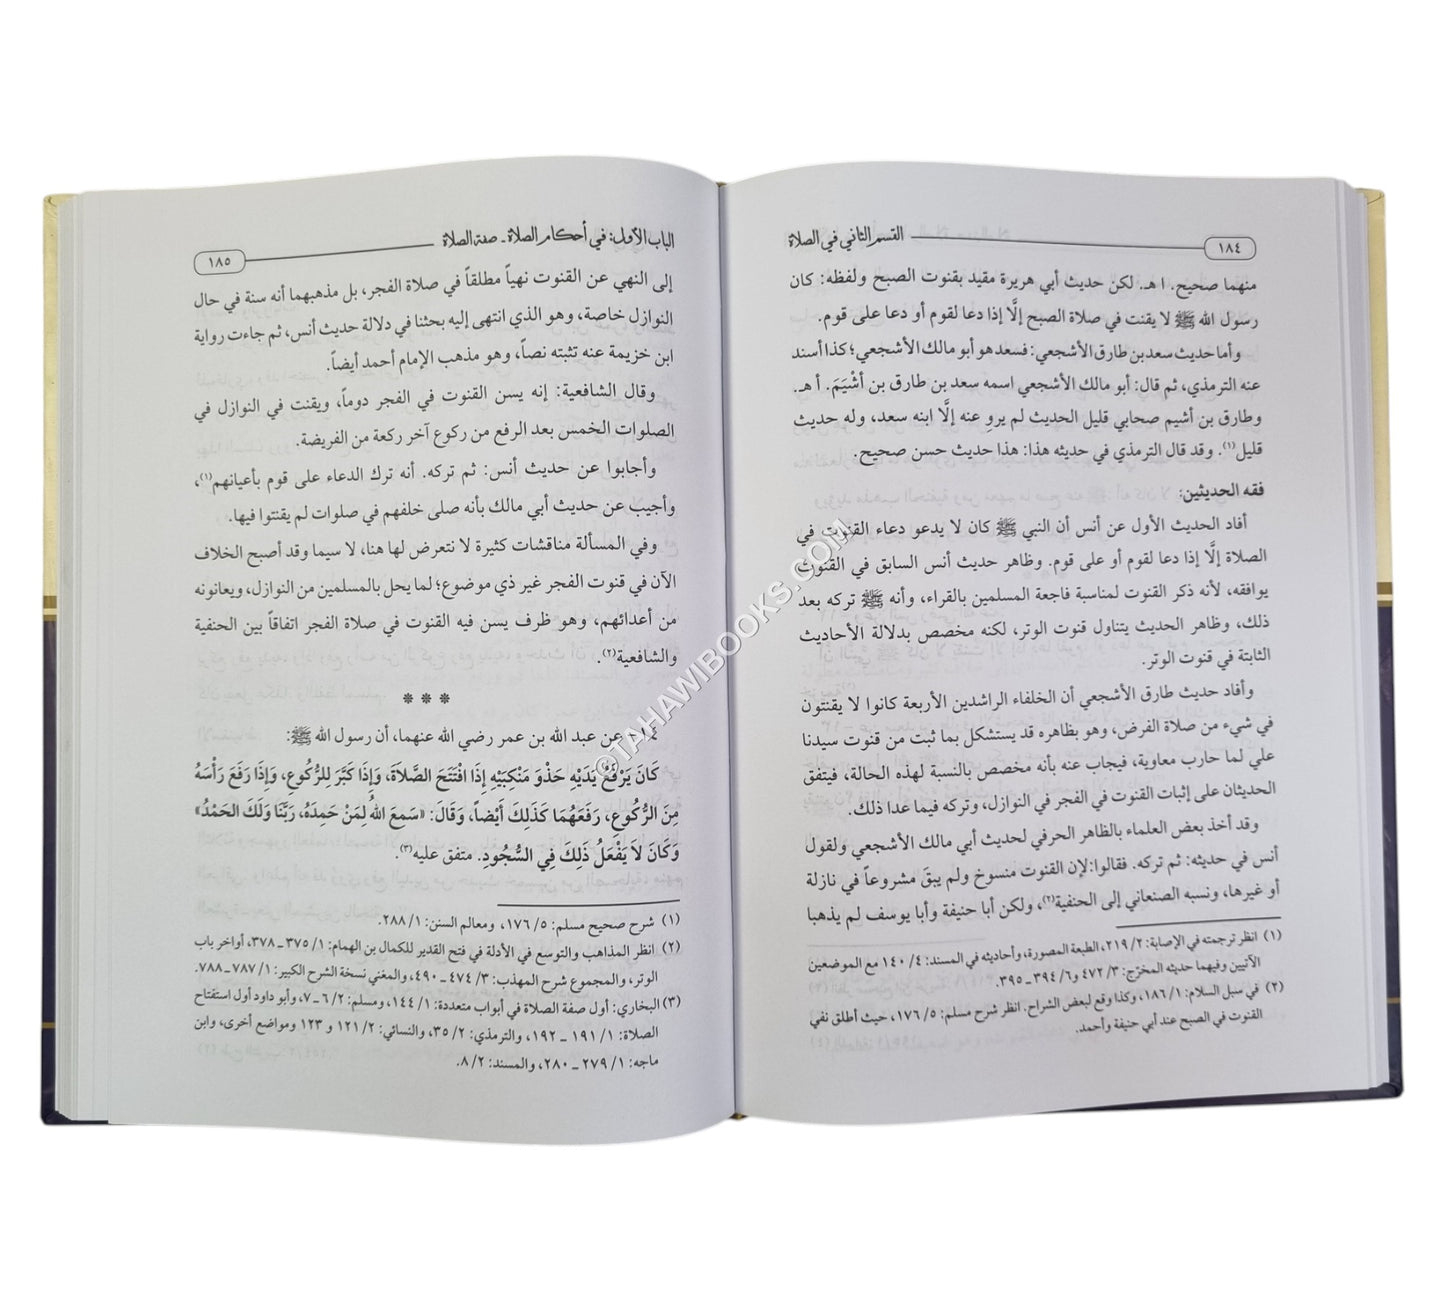 القسم الثاني في الصلاة
١٨٤
منهما صحيح. ا هـ. لكن حديث أبي هريرة مقيد بقنوت الصبح ولفظه: كان
رسول الله ﷺ لا يقنت في صلاة الصبح إلَّا إذا دعا لقوم أو دعا على قوم.
وأما حديث سعد بن طارق الأشجعي: فسعد هو أبو مالك الأشجعي؛ كذا أسند
عنه الترمذي، ثم قال: أبو مالك الأشجعي اسمه سعد بن طارق بن أشْيَمَ. أ هـ.
وطارق بن أشيم صحابي قليل الحديث لم يروِ عنه إلَّا ابنه سعد، وله حديث
قليل(١). وقد قال الترمذي في حديثه هذا: هذا حديث حسن صحيح.
فقه الحديثين:
أفاد الحديث الأول عن أنس أن النبي ﷺ كان لا يدعو دعاء القنوت في
الصلاة إلَّا إذا دعا لقوم أو على قوم. وظاهر حديث أنس السابق في القنوت
يوافقه، لأنه ذكر القنوت لمناسبة فاجعة المسلمين بالقراء، وأنه ﷺ تركه بعد
ذلك، وظاهر الحديث يتناول قنوت الوتر، لكنه مخصص بدلالة الأحاديث
الثابتة في قنوت الوتر.
وأفاد حديث طارق الأشجعي أن الخلفاء الراشدين الأربعة كانوا لا يقنتون
في شيء من صلاة الفرض، وهو بظاهره قد يستشكل بما ثبت من قنوت سيدنا
علي لما حارب معاوية، فيجاب عنه بأنه مخصص بالنسبة لهذه الحالة، فيتفق
الحديثان على إثبات القنوت في الفجر في النوازل، وتركه فيما عدا ذلك.
وقد أخذ بعض العلماء بالظاهر الحرفي لحديث أبي مالك الأشجعي ولقول
أنس في حديثه: ثم تركه. فقالوا: إن القنوت منسوخ ولم يبقَ مشروعاً في نازلة
أو غيرها، ونسبه الصنعاني إلى الحنفية(٢)، ولكن أبا حنيفة وأبا يوسف لم يذهبا
(١) انظر ترجمته في الإصابة: ٢/ ٢١٩، الطبعة المصورة، وأحاديثه في المسند: ٤/ ١٤٠ مع الموضعين
الآتيين وفيهما حديثه المخرّج: ٣/ ٤٧٢ و٦/ ٣٩٤ ـ ٣٩٥.
(٢) في سبل السلام: ١/ ١٨٦، وكذا وقع لبعض الشراح. انظر شرح مسلم: ٥/ ١٧٦، حيث أطلق نفي
القنوت في الصبح عند أبي حنيفة وأحمد.
الباب الأول: في أحكام الصلاة ـ صفة الصلاة
١٨٥
إلى النهي عن القنوت نهياً مطلقاً في صلاة الفجر، بل مذهبهما أنه سنة في حال
النوازل خاصة، وهو الذي انتهى إليه بحثنا في دلالة حديث أنس، ثم جاءت رواية
ابن خزيمة عنه تثبته نصاً، وهو مذهب الإمام أحمد أيضاً.
وقال الشافعية: إنه يسن القنوت في الفجر دوماً، ويقنت في النوازل في
الصلوات الخمس بعد الرفع من ركوع آخر ركعة من الفريضة.
وأجابوا عن حديث أنس: ثم تركه. أنه ترك الدعاء على قوم بأعيانهم(١)،
وأجيب عن حديث أبي مالك بأنه صلى خلفهم في صلوات لم يقنتوا فيها.
وفي المسألة مناقشات كثيرة لا نتعرض لها هنا، لا سيما وقد أصبح الخلاف
الآن في قنوت الفجر غير ذي موضوع؛ لما يحل بالمسلمين من النوازل، ويعانونه
من أعدائهم، وهو ظرف يسن فيه القنوت في صلاة الفجر اتفاقاً بين الحنفية
والشافعية(٢).
* * *
عن عبد الله بن عمر رضي الله عنهما، أن رسول الله ﷺ:
كَانَ يَرْفَعُ يَدَيْهِ حَذْوَ مَنْكِبَيْهِ إِذَا افْتَتَحَ الصَّلاَةَ، وَإِذَا كَبَّرَ لِلرُّكُوعِ، وَإِذَا رَفَعَ رَأْسَهُ
مِنَ الرُّكُوعِ، رَفَعَهُمَا كَذَلِكَ أَيْضاً، وَقَالَ: «سَمِعَ اللهُ لِمَنْ حَمِدَهُ، رَبَّنَا وَلَكَ الحَمْدُ»
وَكَانَ لاَ يَفْعَلُ ذَلِكَ فِي السُّجُودِ. متفق عليه(٣).
(١) شرح صحيح مسلم: ٥/ ١٧٦، ومعالم السنن: ١/ ٢٨٨.
(٢) انظر المذاهب والتوسع في الأدلة في فتح القدير للكمال بن الهمام: ١/ ٣٧٥ ـ ٣٧٨، أواخر باب
الوتر، والمجموع شرح المهذب: ٣/ ٤٧٤ ـ ٤٩٠، والمغني نسخة الشرح الكبير: ١/ ٧٨٧ ـ ٧٨٨.
(٣) البخاري: أول صفة الصلاة في أبواب متعددة: ١/ ١٤٤، ومسلم: ٢/ ٦ ـ ٧، وأبو داود أول استفتاح
الصلاة: ١/ ١٩١ ـ ١٩٢، والترمذي: ٢/ ٣٥، والنسائي: ٢/ ١٢١ و ١٢٣ ومواضع أخرى، وابن
ماجه: ١/ ٢٧٩ ـ ٢٨٠، والمسند: ٢/ ٨.
©TAHAWIBOOKS.COM